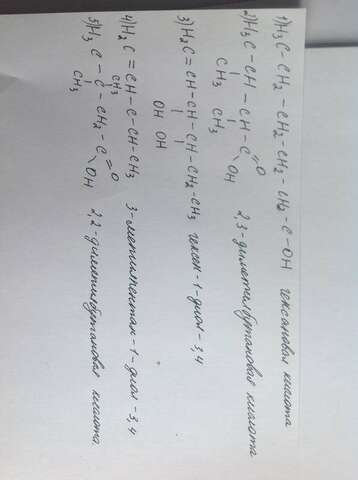 1) H3C-CH2-CH2-CH2-CH2-C-OH гексановая кислота
2) H3C-CH-CH-C=O
OH 2,3-диметилбутановая кислота
CH3 CH3
3) H2C=CH-CH-CH-CH2-CH3 гексен-1-диол-3,4
OH OH
4) H2C=CH-C-CH-CH3 3-метилпентан-1-диол-3,4
CH3
5) H3C-C-CH2-C=O
OH 2,2-диметилбутановая кислота
CH3